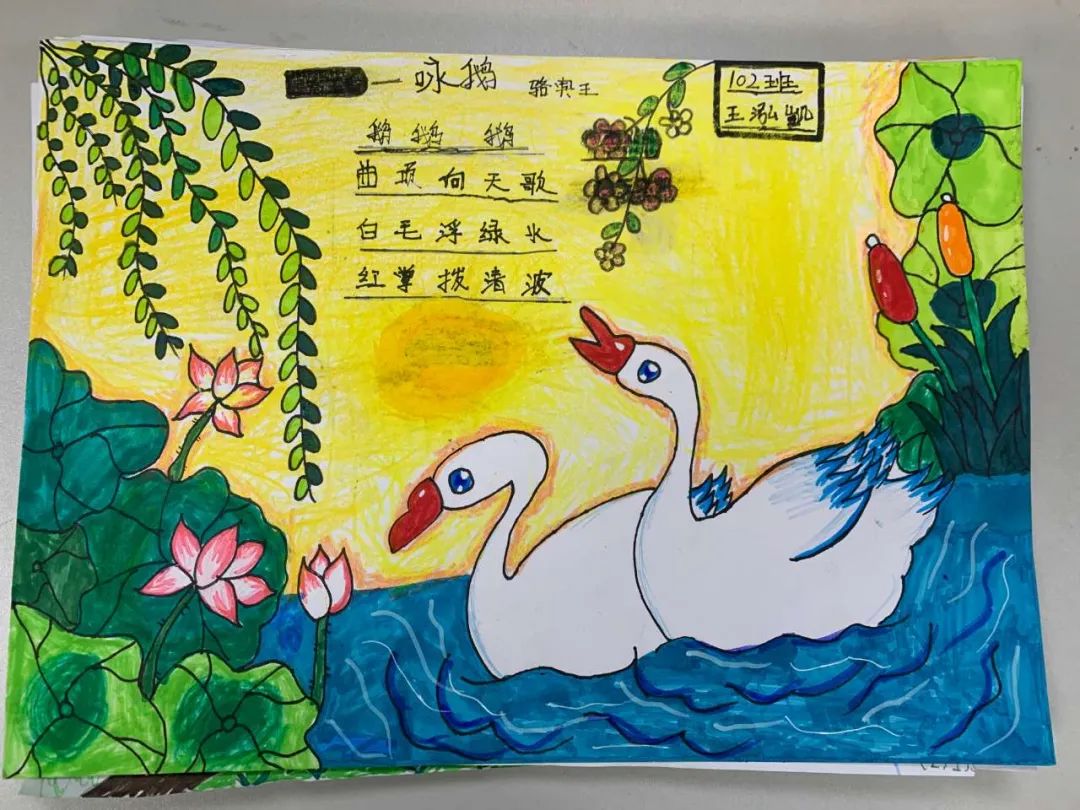 咏鹅 骆宾王
鹅 鹅 鹅
曲项向天歌
白毛浮绿水
红掌拨清波
102班
王泓凯